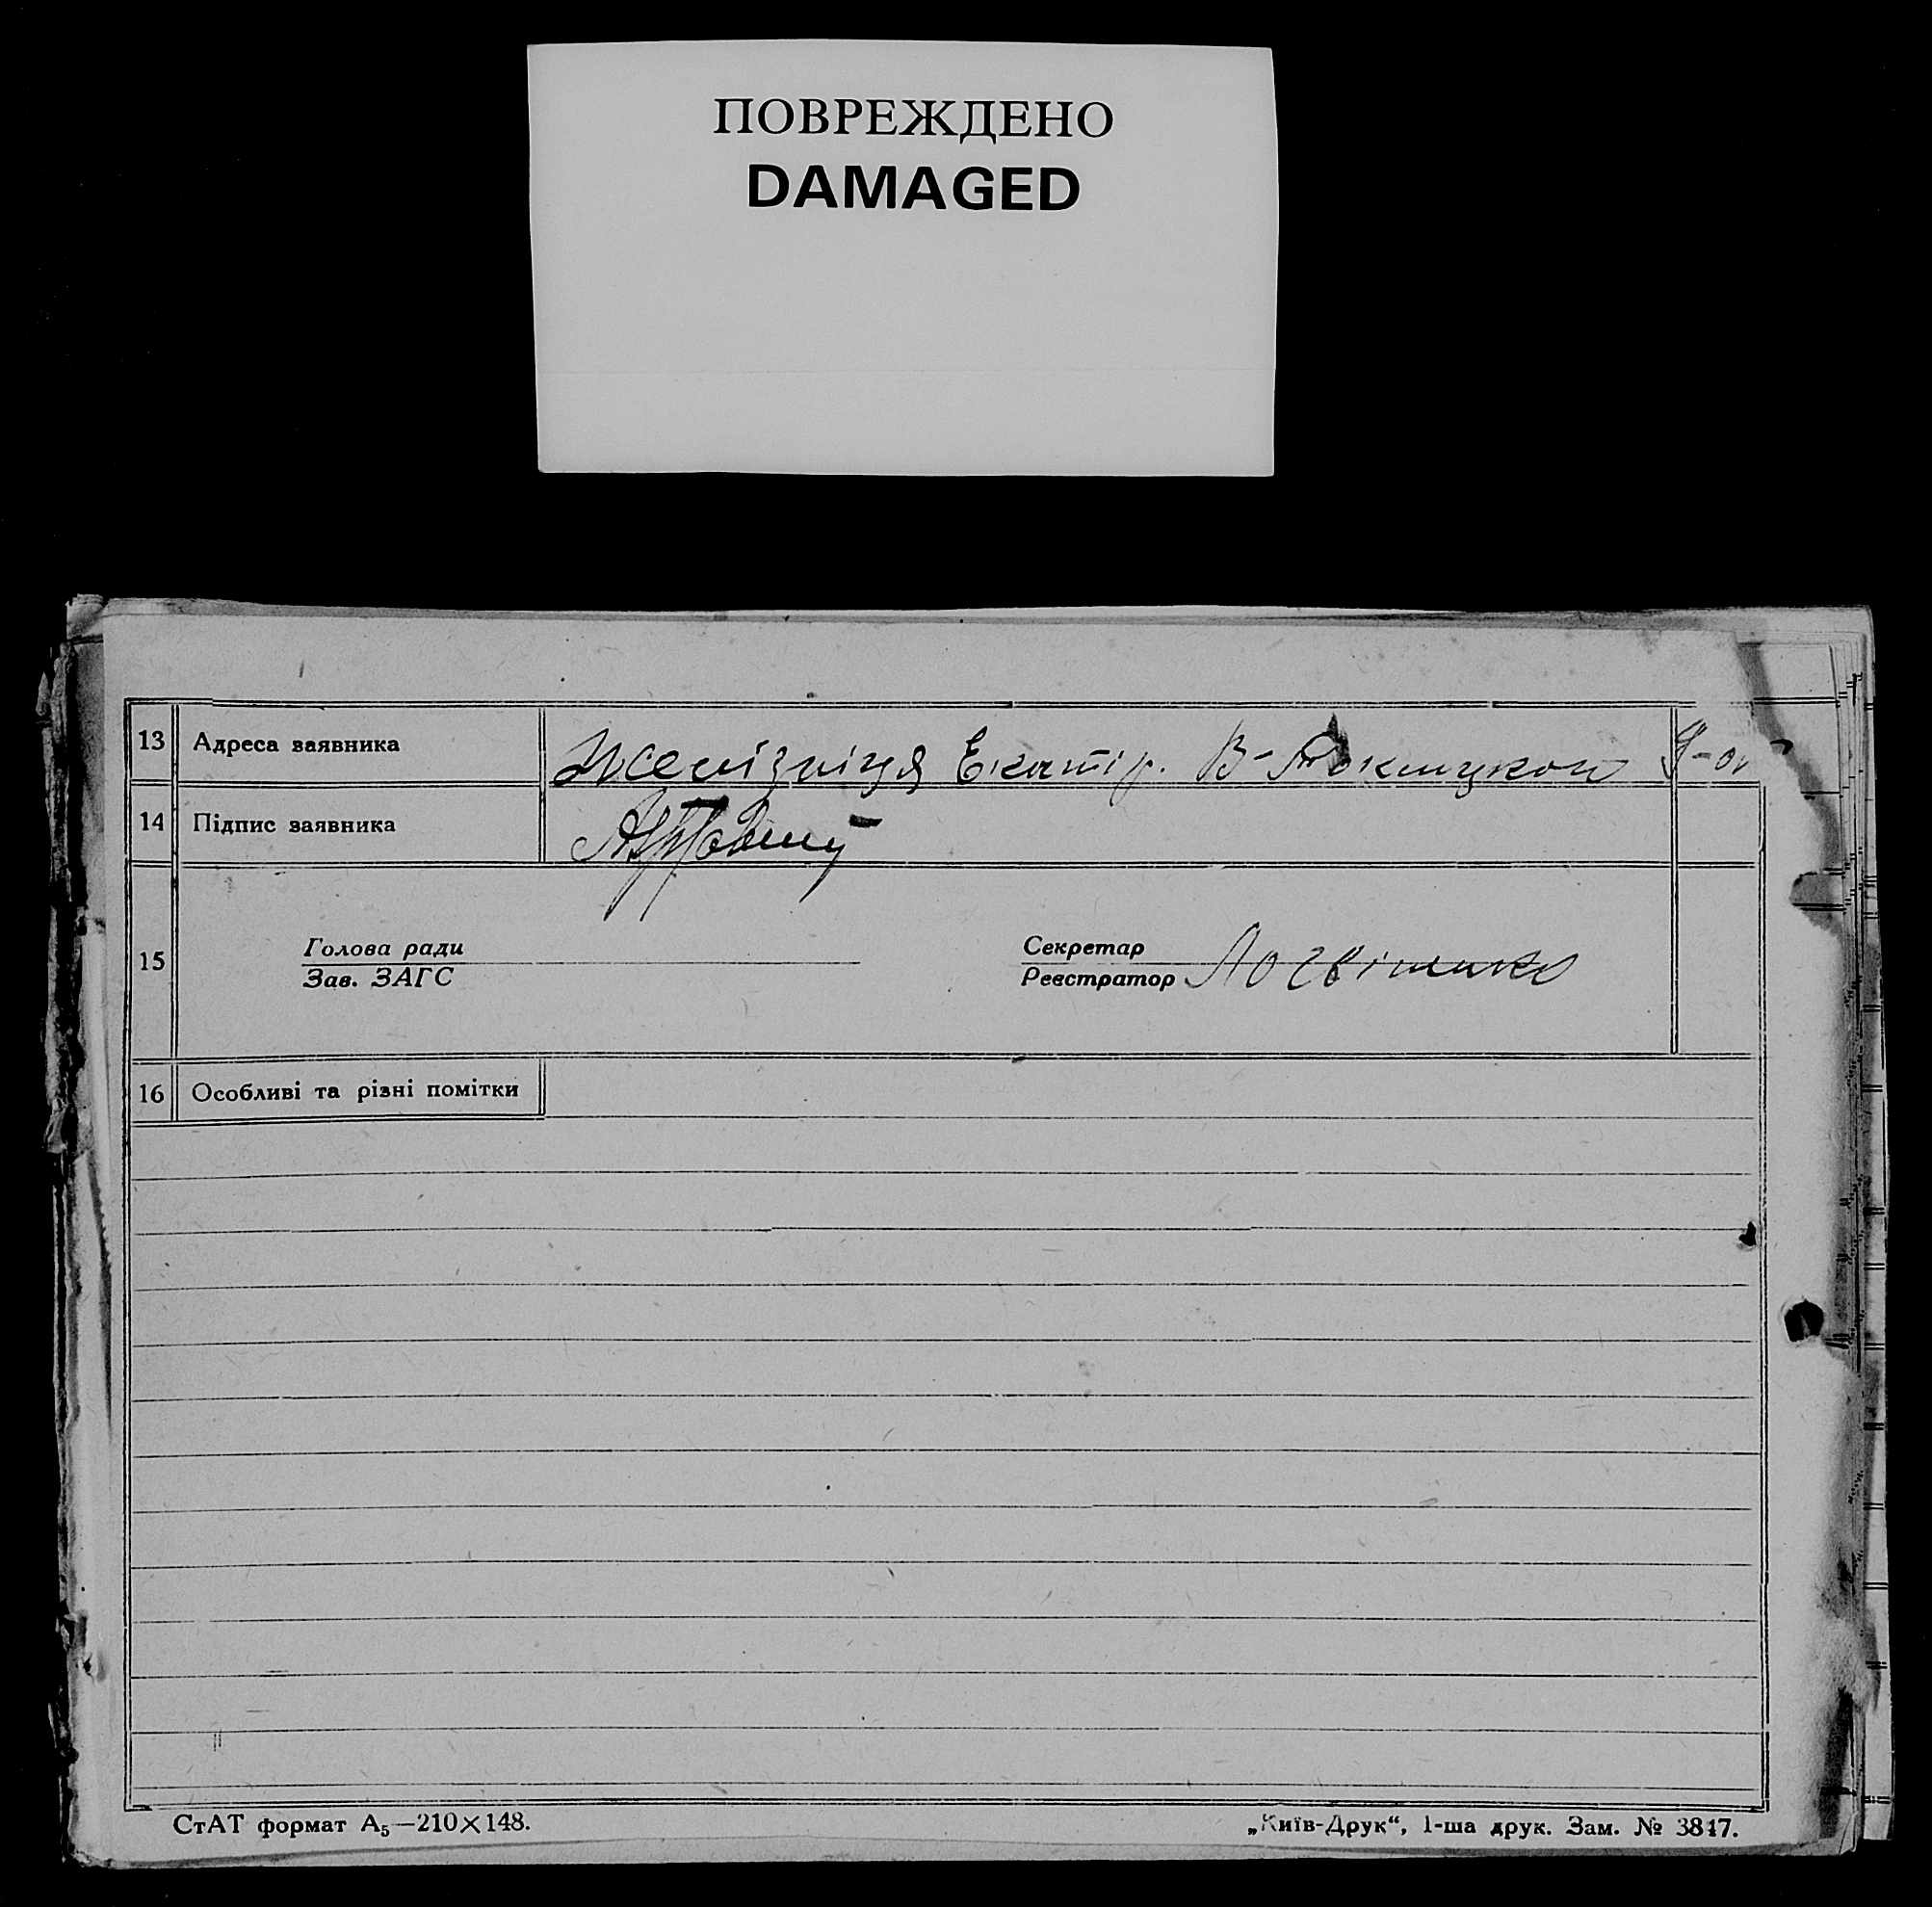 ПОВРЕЖДЕНО
DAMAGED
13 Адреса заявника Желізніця Екатір. В-Токмукого
14 Підпис заявника
Голова ради Секретар
15 Зав. ЗАГС Реєстратор Логвіненко
16 Особливі та різні помітки
СтАТ формат А₅—210×148. „Київ-Друк“, 1-ша друк. Зам. № 3847.